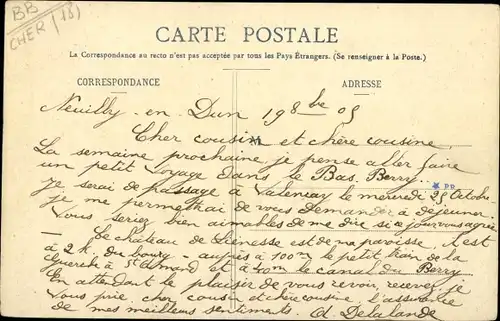 BB
CHER (18)
CARTE POSTALE
La Correspondance au recto n'est pas acceptée par tous les Pays Étrangers. (Se renseigner à la Poste.)
CORRESPONDANCE
ADRESSE
Neuilly-en-Dun 19 8bre 05
Cher cousin et chère cousine,
La semaine prochaine je pense aller faire
un petit voyage dans le Bas-Berry.
Je serai de passage à Valençay le mercredi 25 Octobre
je me permettrai de vous demander à déjeuner.
Vous seriez bien aimables de me dire si ce jour vous agrée
Le château de est de ma paroisse, il est
à 2 k. du bourg - auprès à 100m le petit train de la
Guerche à St Amand et à le canal du Berry
En attendant le plaisir de vous revoir, recevez je
vous prie, cher cousin et chère cousine, l'assurance
de mes meilleurs sentiments. Delalande